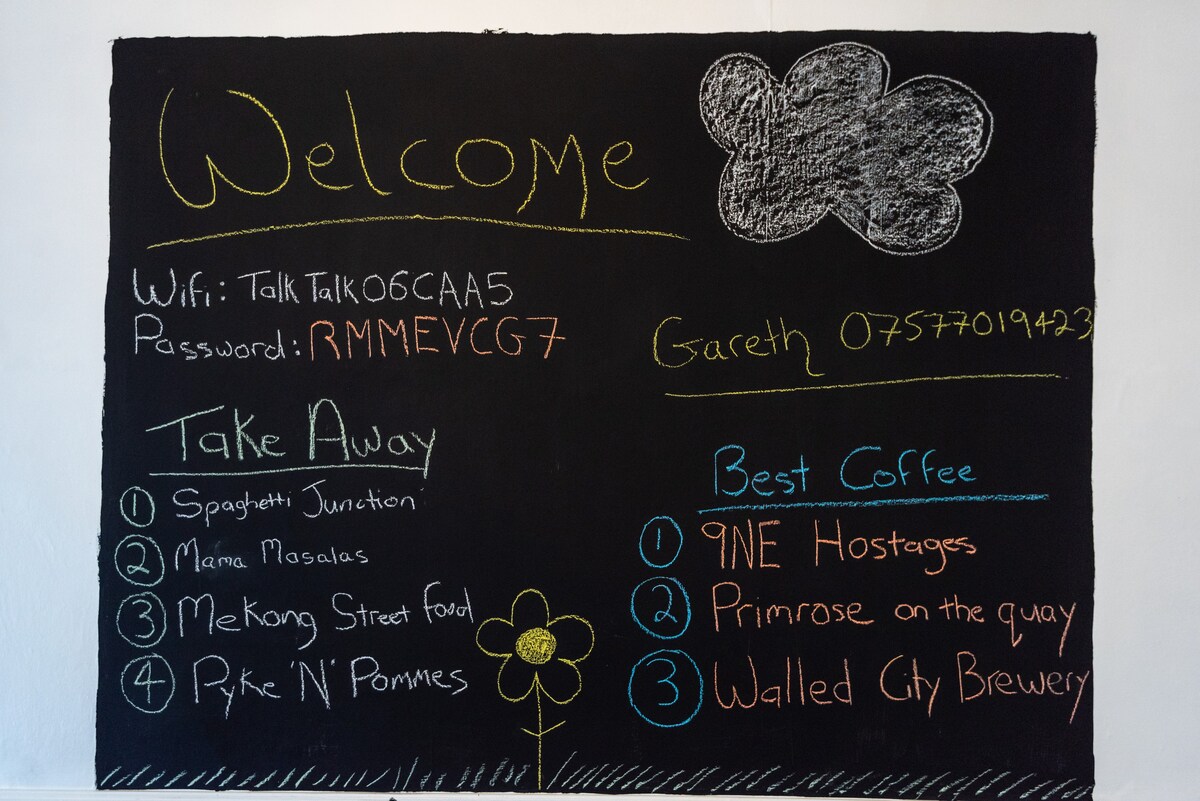 Welcome
Wifi: TalkTalk06CAA5
Password: RMMEVCG7
Gareth 07577019423
Take Away
1 Spaghetti Junction
2 Mama Masalas
3 Mekong Street food
4 Pyke 'N' Pommes
Best Coffee
1 9NE Hostages
2 Primrose on the quay
3 Walled City Brewery